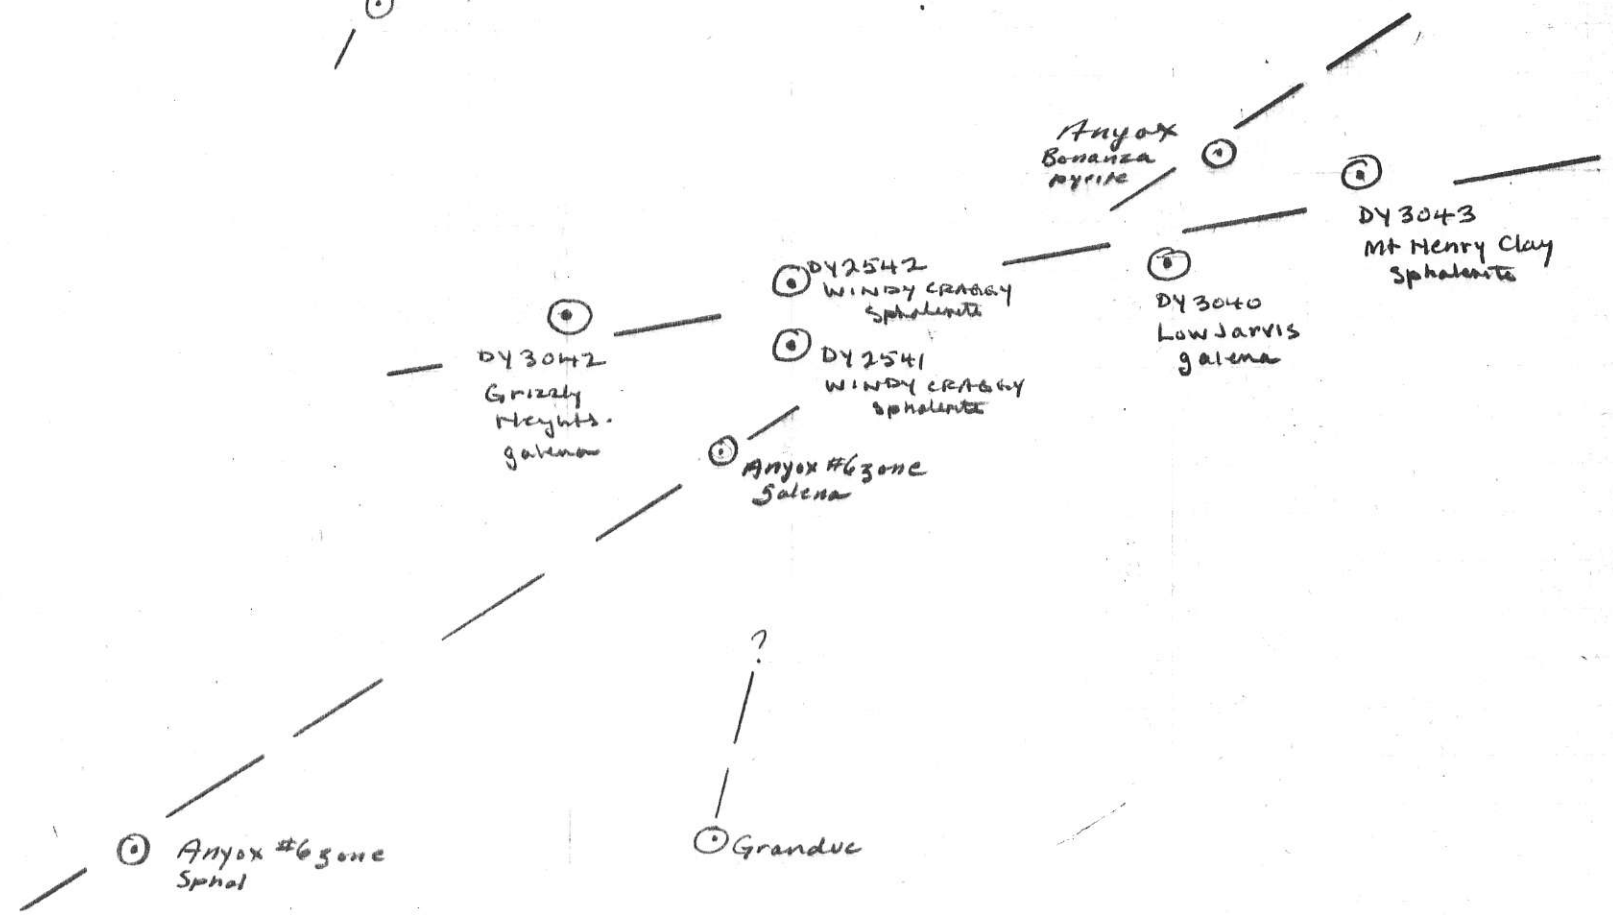 Anyox
Bonanza
pyrite
DY3043
Mt Henry Clay
Sphalerite
DY2542
WINDY CRAGGY
Sphalerite
DY3040
Low Jarvis
galena
DY3042
Grizzly
Heights.
galena
DY2541
WINDY CRAGGY
Sphalerite
Anyox #6 zone
galena
?
Anyox #6 zone
Sphal
Granduc